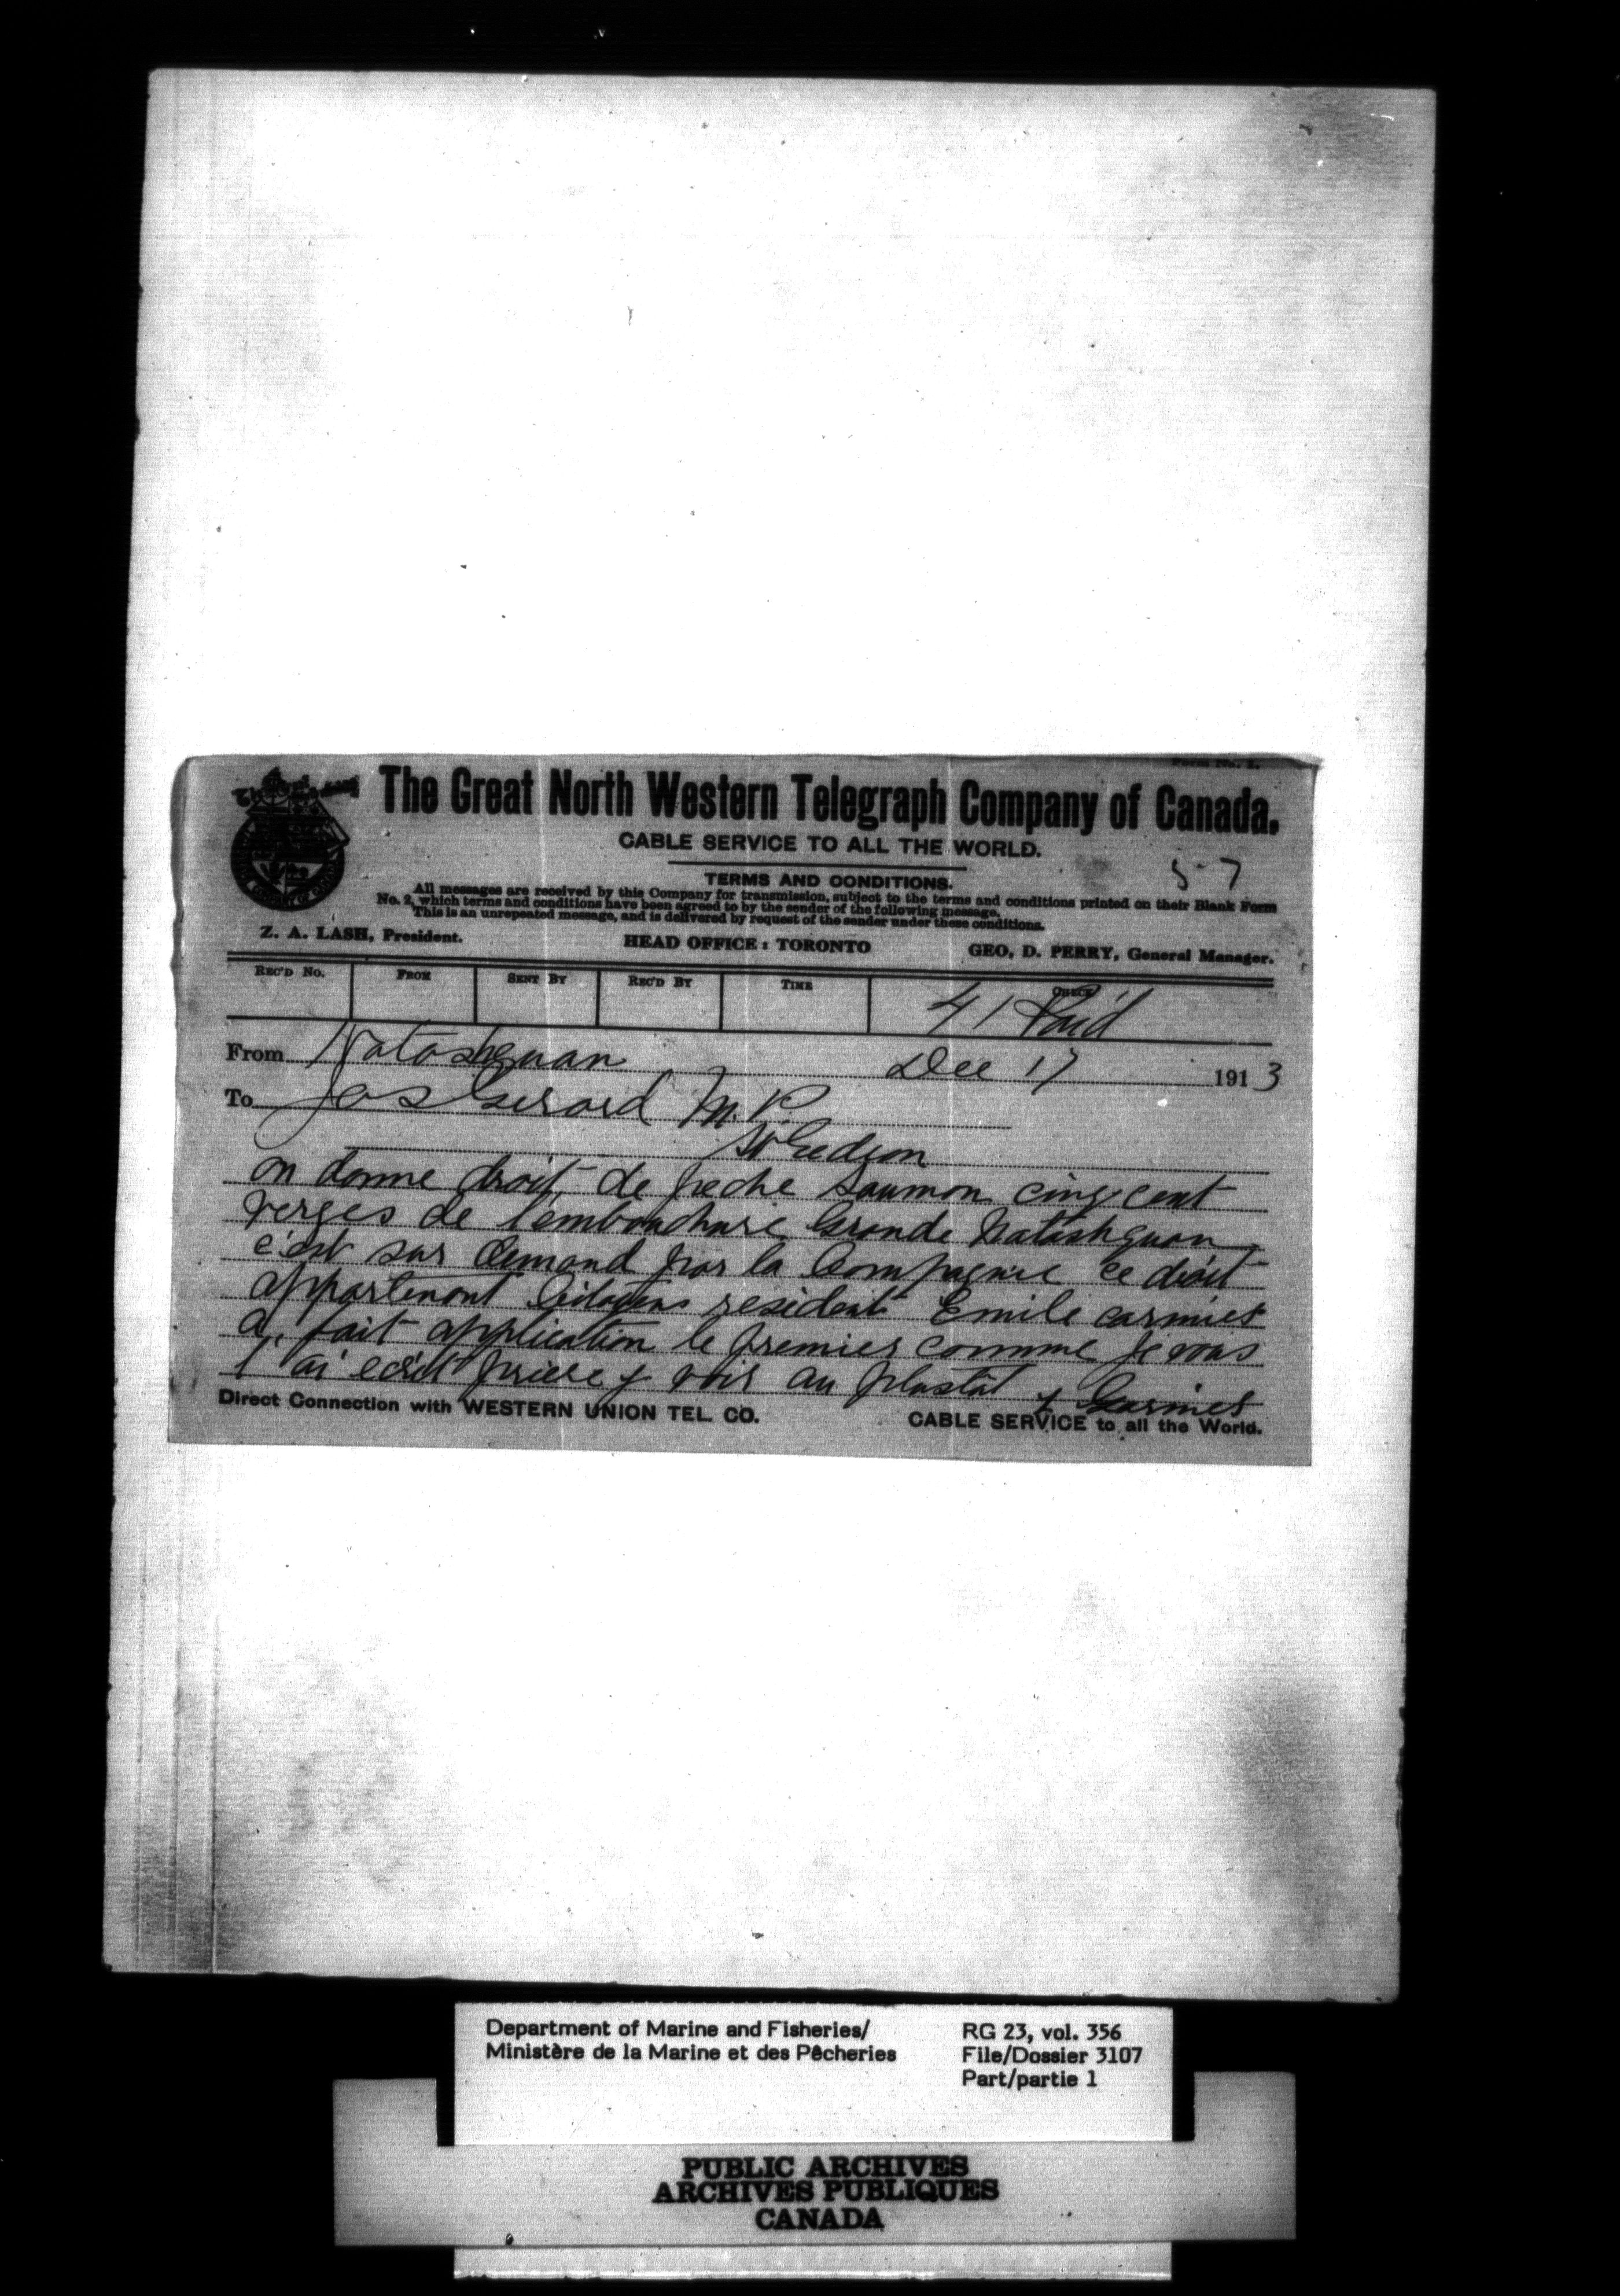 Form No. 2.
The Great North Western Telegraph Company of Canada.
CABLE SERVICE TO ALL THE WORLD.
57
TERMS AND CONDITIONS.
All messages are received by this Company for transmission, subject to the terms and conditions printed on their Blank Form
No. 2, which terms and conditions have been agreed to by the sender of the following message.
This is an unrepeated message, and is delivered by request of the sender under these conditions.
Z. A. LASH, President. HEAD OFFICE: TORONTO GEO. D. PERRY, General Manager.
REC'D No. FROM SENT BY REC'D BY TIME CHECK
41 Paid
From Natashquan Dec 17 1913
To Jos Girard M.P.
St Gedeon
on donne droit de peche saumon cinq cent
verges de l'embouchure Grande Natashquan
c'est sur demand par la Compagnie ce droit
appartenant Citoyens resident Emile carmier
a fait application le premier comme je vous
l ai ecrit priere y voir au plustôt
Direct Connection with WESTERN UNION TEL. CO. CABLE SERVICE to all the World.
Department of Marine and Fisheries/
Ministère de la Marine et des Pêcheries
RG 23, vol. 356
File/Dossier 3107
Part/partie 1
PUBLIC ARCHIVES
ARCHIVES PUBLIQUES
CANADA